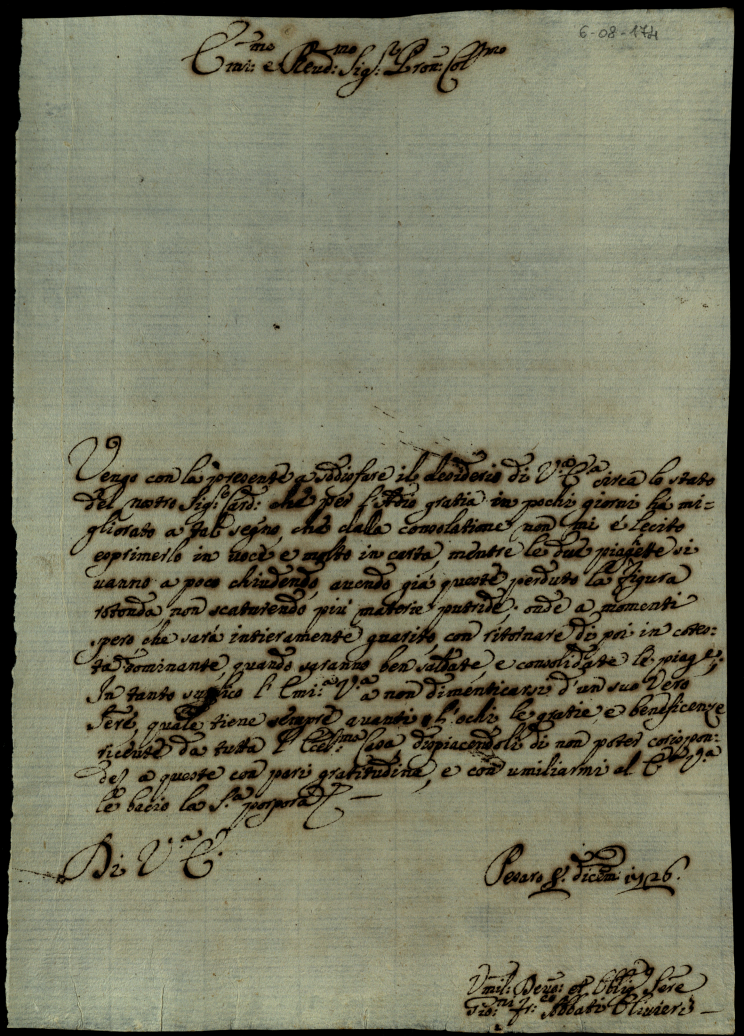 6-08-174
Em:mo e Reud:mo Sig:r Pron: Col:mo
Vengo con la presente a sodisfare il desiderio di V:a E:a circa lo stato
del nostro Sig:e Card: che per f:a Iddio gratia in pochi giorni ha mi=
gliorato a tal segno, che dalla consolatione non mi è lecito
esprimerlo in voce e molto in carta, mentre le due piaghette si
vanno a poco chiudendo, avendo già queste perduto la figura
rotonda non scaturendo più materie putride. onde a momenti
spero, che sarà intieramente guarito, con ritornare di poi in cotes=
ta dominante, quando saranno ben saldate, e consolidate le piaghe;
In tanto suplico l'Emi:a V:a a non dimenticarsi d'un suo Vero
Sere, quale tiene sempre avanti gl'ochi le gratie, e beneficenze
ricevute da tutta l'Ecel:ma Casa dispiacendoli di non poter corispon:
der a queste con pari gratitudina, e con umiliarmi al E:a V:a
le bacio la S:a porpora
Di V:a E:
Pesaro 8: dicem: 1726.
Vmil: Deuo: et Oblig: Sere
Gio:ni Fr:co Abbati Olivieri